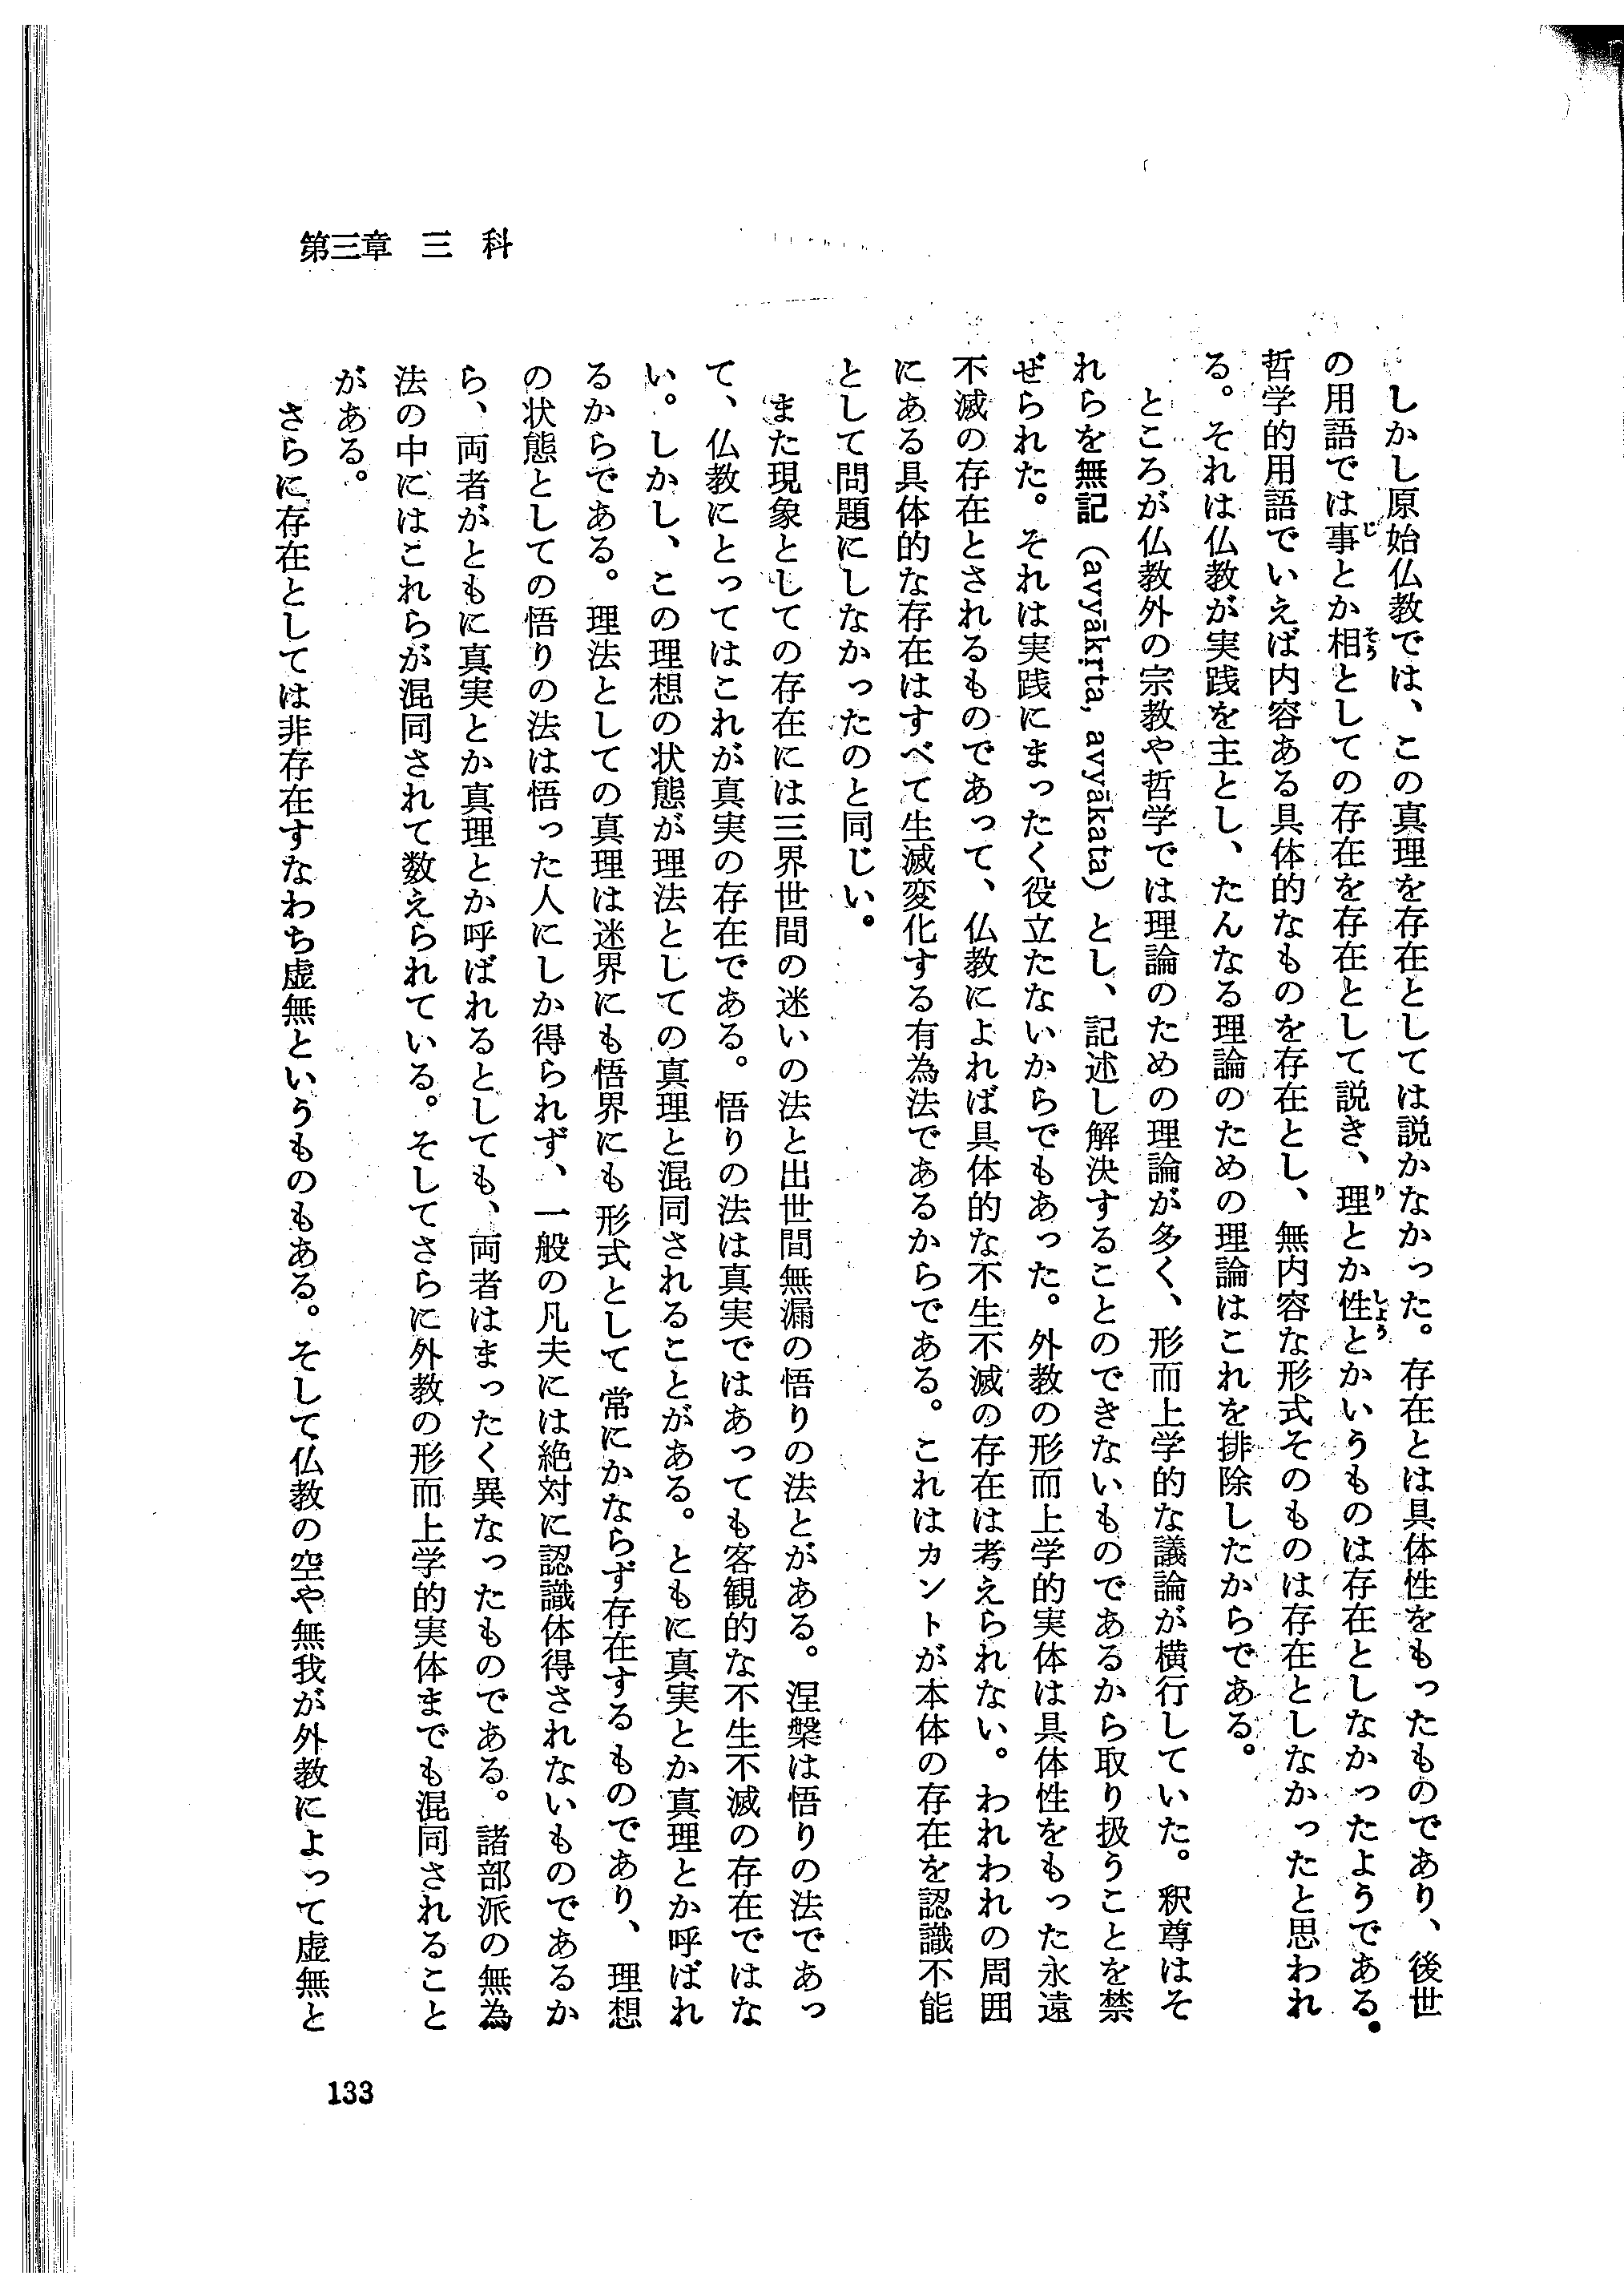 第三章　三　科
しかし原始仏教では、この真理を存在としては説かなかった。存在とは具体性をもったものであり、後世
の用語では事とか相としての存在を存在として説き、理とか性とかいうものは存在としなかったようである。
じ
そう
り
しょう
哲学的用語でいえば内容ある具体的なものを存在とし、無内容な形式そのものは存在としなかったと思われ
る。それは仏教が実践を主とし、たんなる理論のための理論はこれを排除したからである。
ところが仏教外の宗教や哲学では理論のための理論が多く、形而上学的な議論が横行していた。釈尊はそ
れらを無記（avyākṛta, avyākata）とし、記述し解決することのできないものであるから取り扱うことを禁
ぜられた。それは実践にまったく役立たないからでもあった。外教の形而上学的実体は具体性をもった永遠
不滅の存在とされるものであって、仏教によれば具体的な不生不滅の存在は考えられない。われわれの周囲
にある具体的な存在はすべて生滅変化する有為法であるからである。これはカントが本体の存在を認識不能
として問題にしなかったのと同じい。
また現象としての存在には三界世間の迷いの法と出世間無漏の悟りの法とがある。涅槃は悟りの法であっ
て、仏教にとってはこれが真実の存在である。悟りの法は真実ではあっても客観的な不生不滅の存在ではな
い。しかし、この理想の状態が理法としての真理と混同されることがある。ともに真実とか真理とか呼ばれ
るからである。理法としての真理は迷界にも悟界にも形式として常にかならず存在するものであり、理想
の状態としての悟りの法は悟った人にしか得られず、一般の凡夫には絶対に認識体得されないものであるか
ら、両者がともに真実とか真理とか呼ばれるとしても、両者はまったく異なったものである。諸部派の無為
法の中にはこれらが混同されて数えられている。そしてさらに外教の形而上学的実体までも混同されること
がある。
さらに存在としては非存在すなわち虚無というものもある。そして仏教の空や無我が外教によって虚無と
133